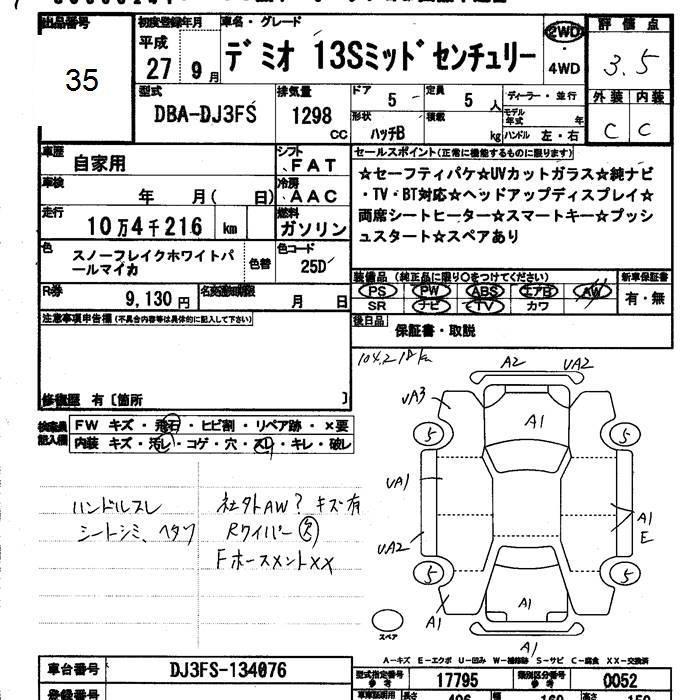 出品番号
35
初度登録年月
平成
27 9月
車名・グレード
デミオ 13Sミッドセンチュリー
2WD
・
4WD
評価点
3.5
外装 内装
C C
型式
DBA-DJ3FS
排気量
1298
cc
ドア
5
定員
5 人
ディーラー・並行
形状
ハッチB
積載
kg
モデル年式 年
ハンドル 左・右
車歴
自家用
シフト
FAT
車検
年 月( 日)
冷房
AAC
走行
10万4千216 km
燃料
ガソリン
セールスポイント(正常に機能するものに限ります)
☆セーフティパケ☆UVカットガラス☆純ナビ
・TV・BT対応☆ヘッドアップディスプレイ☆
両席シートヒーター☆スマートキー☆プッシ
ュスタート☆スペアあり
色
スノーフレイクホワイトパ
ールマイカ
色替
色コード
25D
R券
9,130円
名変期限
月 日
装備品 (純正品に限り○をつけてください)
PS PW ABS エアB AW
SR ナビ TV カワ
新車保証書
有・無
後日品
保証書・取説
注意事項申告欄(不具合内容等は具体的に記入して下さい)
修復歴 有〔箇所 〕
検査員記入欄
FW キズ・飛石・ヒビ割・リペア跡・×要
内装 キズ・汚レ・コゲ・穴・スレ・キレ・破レ
ハンドルスレ
シートシミ、ヘタリ
社外AW? キズ有
Rワイパー 欠
Fホースメント××
A2 UA2
UA3
A1
5 5
UA1
A1
E
UA2
5 5
A1 A1 A1
スペア
A1
A-キズ E-エクボ U-凹み W-補修跡 S-サビ C-腐食 XX-交換済
車台番号
DJ3FS-134076
登録番号
型式指定番号
参考
17795
類別区分番号
参考
0052
長さ
高さ